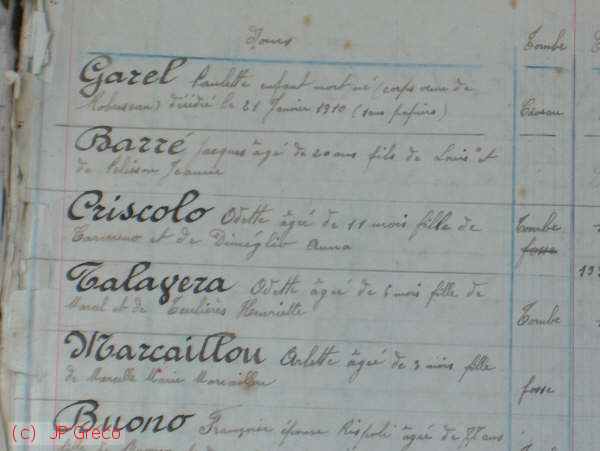 Tombe
Garel Paulette enfant mort né (corps venu de
décédé le 21 Janvier 1910 (sans papiers)
Barré Jacques âgé de 20 ans fils de Louis et
de Jeanne
Criscolo Odette âgée de 11 mois fille de Tombe
et de Diméglio Anna fosse
Talayera Odette âgée de 5 mois fille de
Marcel et de Teulières Henriette Tombe
Marcaillou Arlette âgée de 3 mois fille
de Marcelle Marie Marcaillou fosse
Buono Françoise épouse Rispoli âgée de 77 ans
(c) JP Gréco